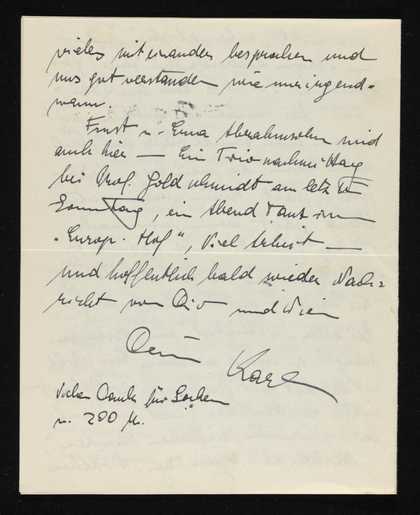 vieles miteinander besprochen und
uns gut verstanden wie nur irgend-
wann.
Ernst u. Erna Abrahamsohn sind
auch hier — Ein Trionachmittag
bei Prof. Goldschmidt am letzten
Sonntag, ein Abend Tanz im
"Europ. Hof", Viel Arbeit —
und hoffentlich bald wieder Nach-
richt von Dir und Wien
Dein Karl
Vielen Dank für Sachen
u. 200 M.